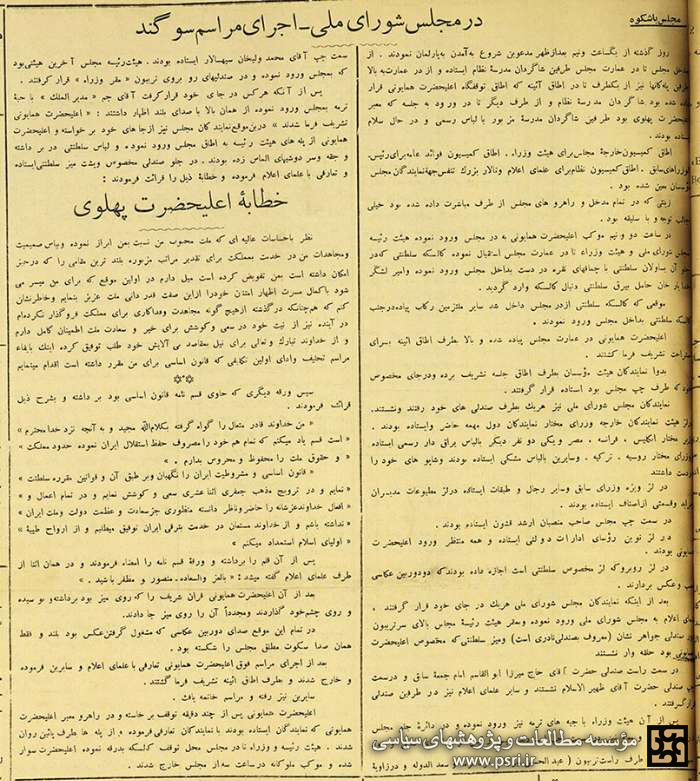 مجلس باشکوه
در مجلس شورای ملی - اجرای مراسم سوگند
روز گذشته از یکساعت و نیم بعدازظهر مدعوین شروع به آمدن به پارلمان نمودند . از
داخل مجلس تا در عمارت مجلس طرفین شاگردان مدرسهٔ نظام ایستاده و از در عمارت به بالا
طرفین پله‌کانها نیز از یکطرف تا در اطاق آئینه که اطاق توقفگاه اعلیحضرت همایونی قرار
داده شده بود شاگردان مدرسهٔ نظام و از طرف دیگر تا در ورود به جلسه که معبر
اعلیحضرت پهلوی بود طرفین شاگردان مدرسهٔ مزبور با لباس رسمی و در حال سلام
ایستاده بودند .
اطاق کمیسیون خارجهٔ مجلس برای هیئت وزراء . اطاق کمیسیون فوائد عامه برای رئیس
الوزراهای سابق . اطاق کمیسیون نظام برای علمای اعلام و تالار بزرگ تنفس جهة نمایندگان مجلس
مؤسسان معین شده بود .
زینتی که در تمام مدخل و راهرو های مجلس از طرف مباشرت داده شده بود خیلی
جالب توجه و با سلیقه بود .
در ساعت دو و نیم موکب اعلیحضرت همایونی به در مجلس ورود نموده هیئت رئیسه
مجلس شورای ملی و هیئت وزراء تا در عمارت مجلس استقبال نموده کالسکه سلطنتی که در
جلو آن یساولان سلطنتی با چماقهای نقره در دست بداخل مجلس ورود نموده وامیر لشگر
خدایار خان حامل بیرق سلطنتی دنبال کالسکه وارد گردید .
موقعی که کالسکه سلطنتی از در مجلس داخل شد سایر ملتزمین رکاب پیاده در جنب
کالسکه سلطنتی بداخل مجلس ورود نمودند .
اعلیحضرت همایونی در عمارت مجلس پیاده شده و بالا بطرف اطاق آئینه برای
استراحت تشریف فرما گشتند .
بدوا نمایندگان هیئت مؤسسان بطرف اطاق جلسه تشریف برده و در جای مخصوص
خود که طرف چپ مجلس بود استاده قرار گرفتند .
نمایندگان مجلس شورای ملی نیز هریک بطرف صندلی های خود رفتند ونشستند.
در لژ هیئت نمایندگان خارجه وزرای مختار نمایندگان دول مهمه حاضر و ایستاده بودند .
وزیر مختار انگلیس . فرانسه ، مصر و یکی دو نفر دیگر بالباس یراق دار رسمی ایستاده
وزرای مختار روسیه . ترکیه . وسایرین بالباس مشکی ایستاده بودند وشاپو های خود را
در دست داشتند
در لژ ویژه وزرای سابق و سایر رجال و طبقات ایستاده در لژ مطبوعات مدیران
جراید وقسمتی ازاصناف ایستاده بودند .
در سمت چپ مجلس صاحب منصبان ارشد قشون ایستاده بودند .
در لژ نوین رؤسای ادارات دولتی ایستاده و همه منتظر ورود اعلیحضرت
همایونی بودند .
در لژ روبرو که لژ مخصوص سلطنتی است اجازه داده بودند که دو دوربین عکاسی
وعکس بردارند .
بعد از اینکه نمایندگان مجلس شورای ملی هریک در جای خود قرار گرفتند .
علمای اعلام به مجلس شورای ملی ورود نموده و مقر هیئت رئیسهٔ مجلس بالای سر تریبون
صندلی جواهر نشان (معروف بصندلی نادری است) ومیز سلطنتی که مخصوص اعلیحضرت
همایونی بود حلقه وار نشستند
در سمت راست صندلی حضرت آقای حاج میرزا ابوالقاسم امام جمعهٔ سابق و در سمت
چپ صندلی حضرت آقای ظهیر الاسلام نشستند و سایر علمای اعلام نیز در طرفین صندلی
قرار گرفتند.
پس از آن هیئت وزراء با جبه های ترمه نیز ورود نموده و در دائرهٔ جلو مجلس
طرف راست تریبون
سعد الدوله و در زاویهٔ
سمت چپ آقای محمد ولیخان سپهسالار ایستاده بودند . هیئت رئیسه مجلس آخرین هیئتی بود
که بمجلس ورود نموده و در صندلیهای رو بروی تریبون « مقر وزراء » قرار گرفتند .
پس از آنکه هرکس در جای خود قرار گرفت آقای جم « مدیر الملک » با جبهٔ
ترمه بمجلس ورود نموده از همان بالا با صدای بلند اظهار داشتند : « اعلیحضرت همایونی
تشریف فرما شدند » درین موقع نمایندگان مجلس نیز از جا های خود بر خواسته و اعلیحضرت
همایونی از پله های هیئت رئیسه به اطاق مجلس ورود نموده و لباس سلطنتی در بر داشته
و جقه وسر دوشیهای الماس زده بودند . در جلو صندلی مخصوص وپشت میز سلطنتی ایستاده
و تعارفی با علمای اعلام فرموده و خطابهٔ ذیل را قرائت فرمودند :
خطابهٔ اعلیحضرت پهلوی
نظر باحساسات عالیه‌ای که ملت محبوب من نسبت بمن ابراز نموده وبپاس صمیمیت
ومجاهدات من در خدمت بمملکت برای تقدیر مراتب مزبوره بلند ترین مقامی را که در حیز
امکان داشته است بمن تفویض کرده است میل دارم در اولین موقع که برای من میسر می
شود باکمال مسرت اظهار امتنان خود را از این صفت قدر دانی ملت عزیز بنمایم وخاطرنشان
کنم که همچنانکه در گذشته از هیچ گونه مجاهدت وفداکاری برای مملکت فروگذار نکرده‌ام
در آینده نیز از نیت خود در سعی وکوشش برای خیر و سعادت ملت اطمینان کامل دارم
و از خداوند تبارک و تعالی برای نیل بمقاصد بی آلایش خود طلب توفیق کرده اینک بایفاء
مراسم تحلیف وادای اولین تکلیفی که قانون اساسی برای من مقرر داشته است اقدام مینمایم
سپس ورقه دیگری که حاوی قسم نامه قانون اساسی بود بر داشته و بشرح ذیل
قرائت فرمودند .
« من خداوند قادر متعال را گواه گرفته بکلام‌الله مجید و به آنچه نزد خدا محترم »
« است قسم یاد میکنم که تمام هم خود را مصروف حفظ استقلال ایران نموده حدود مملکت »
« و حقوق ملت را محفوظ و محروس بدارم . »
« قانون اساسی و مشروطیت ایران را نگهبان وبر طبق آن و قوانین مقرره سلطنت »
« نمایم و در ترویج مذهب جعفری اثنا عشری سعی و کوشش نمایم و در تمام اعمال و »
« افعال خداوند عزشانه را حاضر وناظر دانسته منظوری جز سعادت و عظمت دولت وملت ایران »
« نداشته باشم و از خداوند مستعان در خدمت بترقی ایران توفیق میطلبم و از ارواح طیبهٔ »
« اولیای اسلام استمداد میکنم »
پس از آن قلم را برداشته و ورقهٔ قسم نامه را امضاء فرمودند و در همان اثنا از
طرف علمای اعلام گفته میشد : « بالعز والسعاده ـ منصور و مظفر باشید . »
بعد از آن اعلیحضرت همایونی قرآن شریف را که روی میز بود برداشته و بوسیده
و روی چشم خود گذاردند ومجدداً آن را روی میز جا دادند.
در تمام این موقع صدای دوربین عکاسی که مشغول گرفتن عکس بود بلند و فقط
همان صدا سکوت مطلق مجلس را شکسته بود .
بعد از اجرای مراسم فوق اعلیحضرت همایونی تعارفی با علمای اعلام و سایرین فرموده
و خارج شدند و طرف اطاق آئینه تشریف فرما گشتند .
سایرین نیز رفته و مراسم خاتمه یافت .
اعلیحضرت همایونی پس از چند دقیقه توقف بر خاسته و در راهرو معبر اعلیحضرت
همایونی که نمایندگان ایستاده بودند با نمایندگان تعارفی فرموده و از پله ها طرف پائین روان
شدند . هیئت رئیسه و وزراء تا در مجلس محل توقف کالسکه بدرقه نموده اعلیحضرت سوار
شده و موکب ملوکانه در ساعت سه از مجلس خارج شدند .
مؤسسه مطالعات و پژوهشهای سیاسی
www.psri.ir